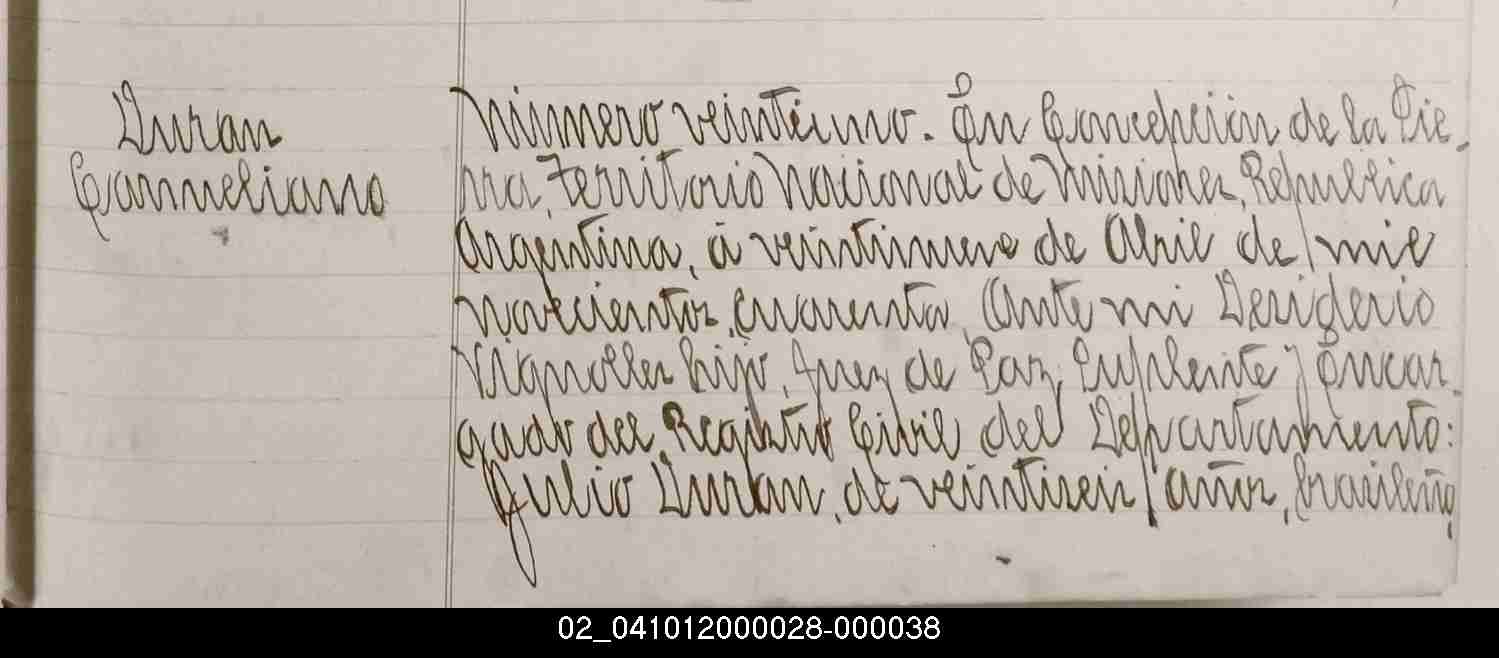 Duran
Carmeliano
Número veintiuno. En Concepción de la Sie-
rra, Territorio Nacional de Misiones, República
Argentina, á veintinueve de Abril de mil
novecientos cuarenta. Ante mi Desiderio
Vignolles hijo, Juez de Paz Suplente y Encar-
gado del Registro Civil del Departamento:
Julio Duran, de veintiseis años, brasileño
02_041012000028-000038